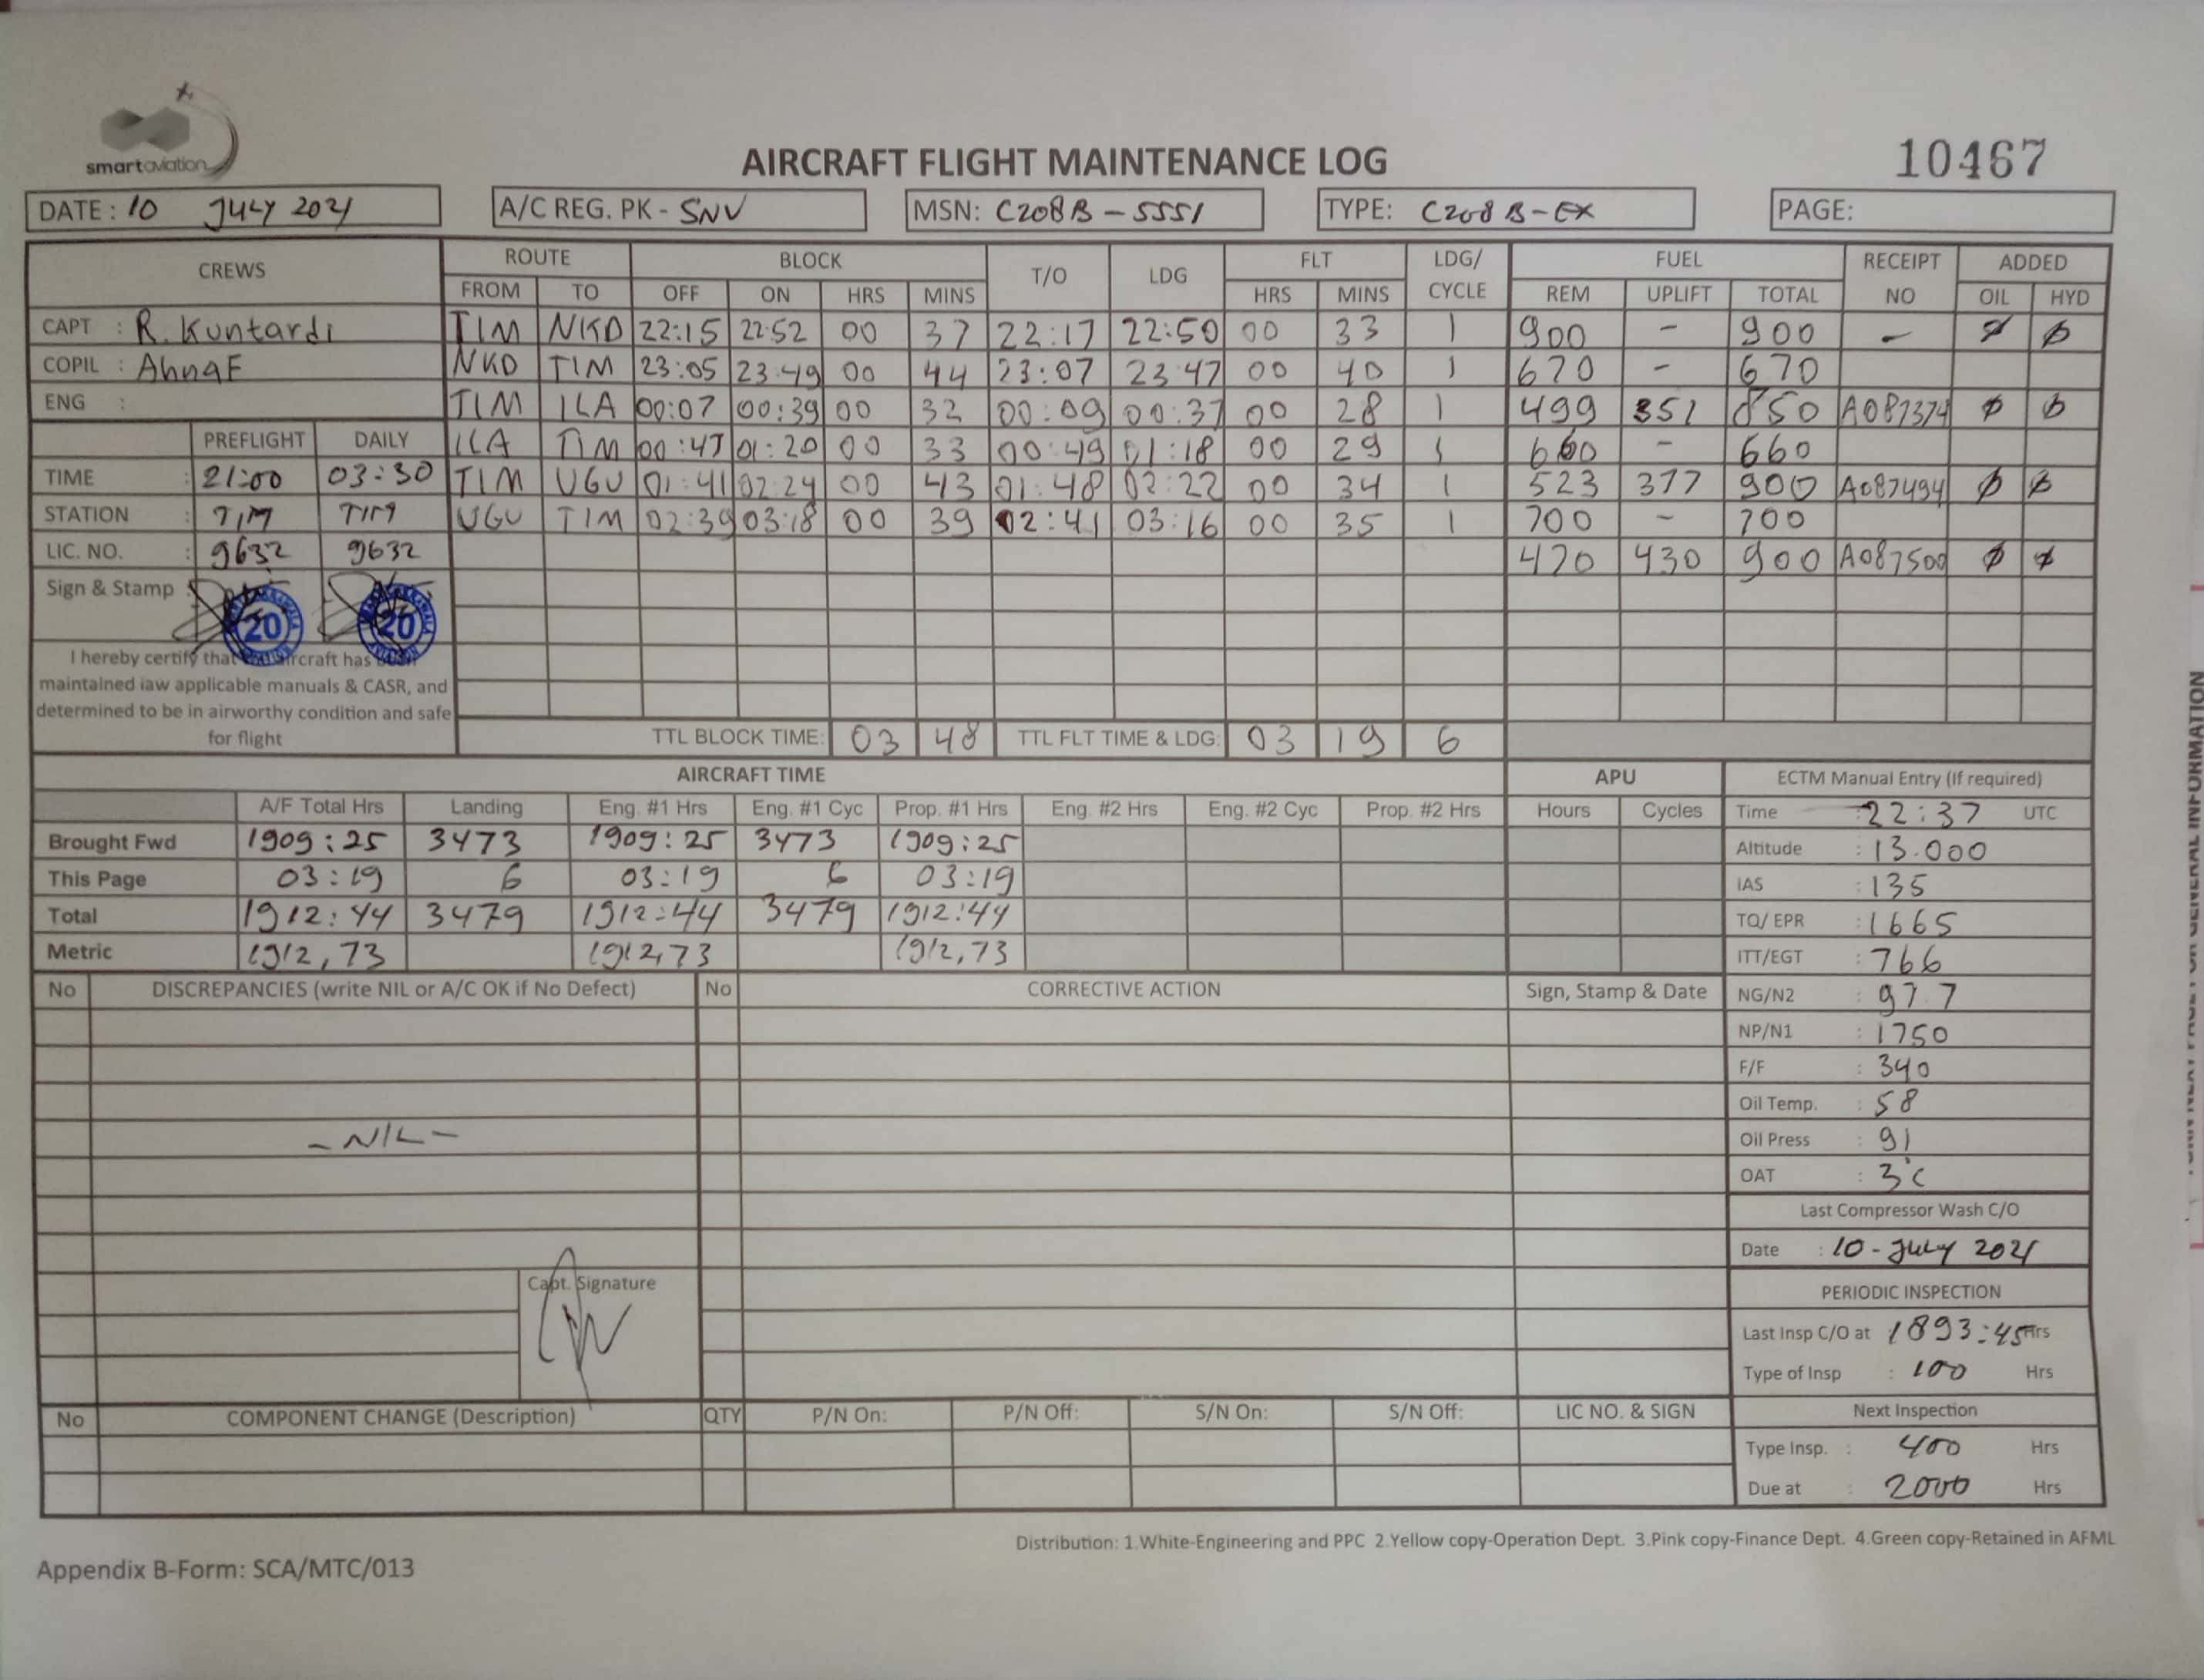 smartaviation
AIRCRAFT FLIGHT MAINTENANCE LOG
10467
DATE: 10 JULY 2021 A/C REG. PK - SNV MSN: C208B - 5551 TYPE: C208B-EX PAGE:
CREWS ROUTE BLOCK T/O LDG FLT LDG/ CYCLE FUEL RECEIPT NO ADDED
FROM TO OFF ON HRS MINS HRS MINS REM UPLIFT TOTAL OIL HYD
CAPT : R. Kuntardi TIM NKD 22:15 22:52 00 37 22:17 22:50 00 33 1 900 - 900 - Ø Ø
COPIL : AhnaF NKD TIM 23:05 23:49 00 44 23:07 23:47 00 40 1 670 - 670
ENG : TIM ILA 00:07 00:39 00 32 00:09 00:37 00 28 1 499 351 850 A087374 Ø Ø
PREFLIGHT DAILY ILA TIM 00:47 01:20 00 33 00:49 01:18 00 29 1 660 - 660
TIME : 21:00 03:30 TIM UGU 01:41 02:24 00 43 01:48 02:22 00 34 1 523 377 900 A087494 Ø Ø
STATION : TIM TIM UGU TIM 02:39 03:18 00 39 02:41 03:16 00 35 1 700 - 700
LIC. NO. : 9632 9632 470 430 900 A087500 Ø Ø
Sign & Stamp :
20 20
I hereby certify that aircraft has been
maintained iaw applicable manuals & CASR, and
determined to be in airworthy condition and safe
for flight
TTL BLOCK TIME: 03 48 TTL FLT TIME & LDG: 03 19 6
AIRCRAFT TIME APU ECTM Manual Entry (If required)
A/F Total Hrs Landing Eng. #1 Hrs Eng. #1 Cyc Prop. #1 Hrs Eng. #2 Hrs Eng. #2 Cyc Prop. #2 Hrs Hours Cycles Time 22:37 UTC
Brought Fwd 1909:25 3473 1909:25 3473 1909:25 Altitude : 13.000
This Page 03:19 6 03:19 6 03:19 IAS : 135
Total 1912:44 3479 1912:44 3479 1912:44 TQ/ EPR : 1665
Metric 1912,73 1912,73 1912,73 ITT/EGT : 766
No DISCREPANCIES (write NIL or A/C OK if No Defect) No CORRECTIVE ACTION Sign, Stamp & Date NG/N2 : 97.7
NP/N1 : 1750
F/F : 340
Oil Temp. : 58
- NIL - Oil Press : 91
OAT : 3°C
Last Compressor Wash C/O
Date : 10 - July 2021
Capt. Signature
PERIODIC INSPECTION
Last Insp C/O at 1893:45 Hrs
Type of Insp : 100 Hrs
No COMPONENT CHANGE (Description) QTY P/N On: P/N Off: S/N On: S/N Off: LIC NO. & SIGN Next Inspection
Type Insp. : 400 Hrs
Due at : 2000 Hrs
Distribution: 1.White-Engineering and PPC 2.Yellow copy-Operation Dept. 3.Pink copy-Finance Dept. 4.Green copy-Retained in AFML
Appendix B-Form: SCA/MTC/013
GENERAL INFORMATION